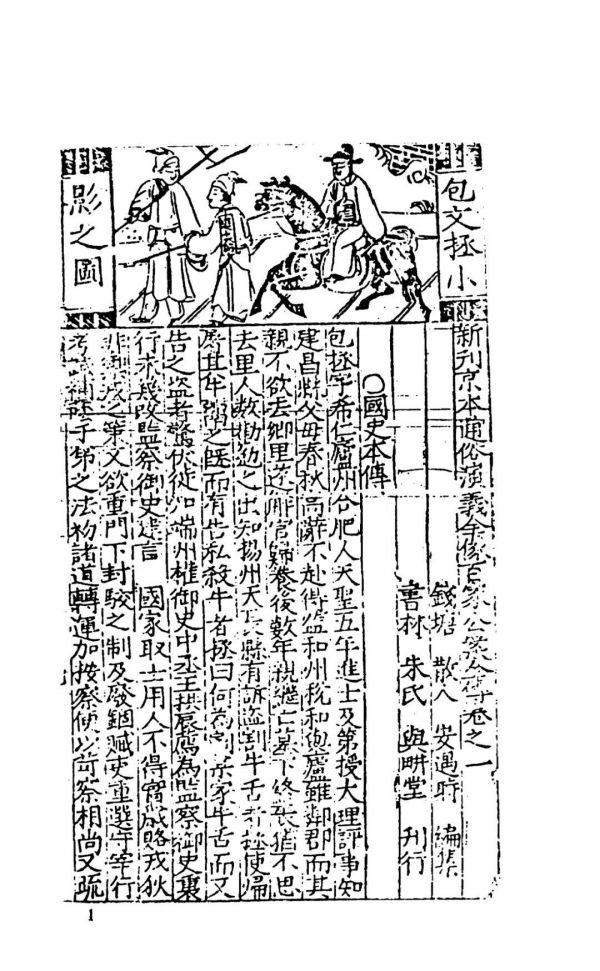 包文拯小
影之圖
新刊京本通俗演義全像百家公案全傳卷之一
錢塘 散人 安遇時 編集
書林 朱氏 與畊堂 刊行
○國史本傳
包拯字希仁廬州合肥人天聖五年進士及第授大理評事知
建昌縣父母春秋高辭不赴得監和州稅和與廬雖鄰郡而其
親不欲去鄉里遂辭官歸養後數年親繼亡墓下終喪猶不忍
去里人數勸勉之出知揚州天長縣有訴盜割牛舌者拯使歸
屠其牛鬻之既而有告私殺牛者拯曰何為割某家牛舌而又
告之盜者驚伏徙知端州權御史中丞王拱辰薦為監察御史裏
行未幾改監察御史建言 國家取士用人不得實歲賂戎狄
非禦戎之策又欲重門下封駁之制及廢錮贓吏重選守宰行
考試補廕子弟之法初諸道轉運加按察使以苛察相尚又疏
1